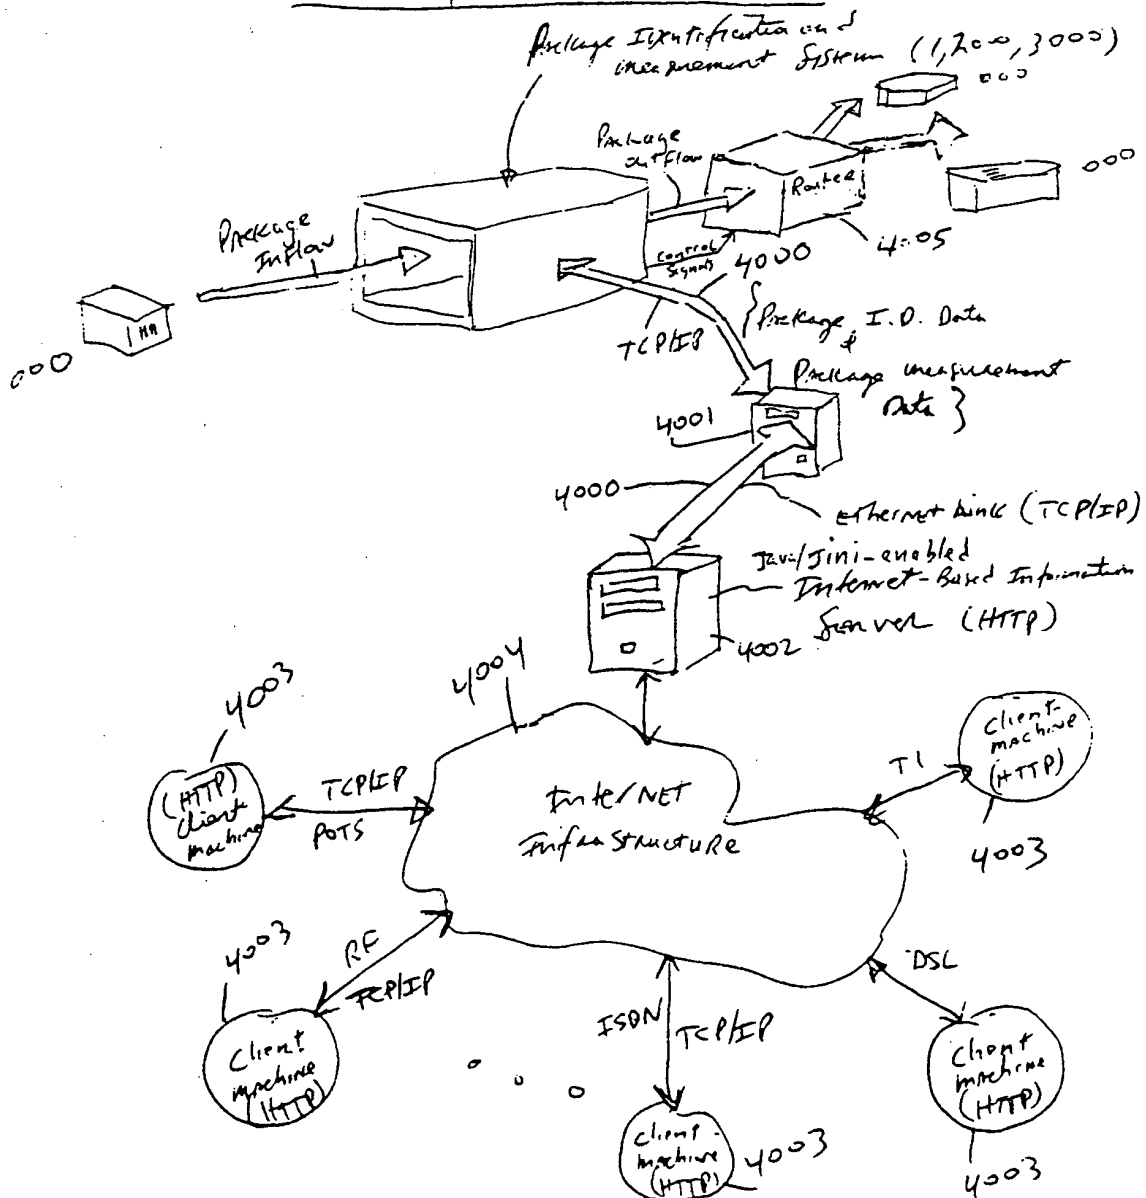 Package Identification and
measurement System (1,200,3000)
Package
outflow
Router
Package
Inflow
Control
Signals
4000
4005
TCP/IP
{Package I.D. Data
&
Package measurement
Data }
4001
4000
Ethernet Link (TCP/IP)
Java/Jini-enabled
Internet-Based Information
Server (HTTP)
4002
4004
4003
(HTTP)
Client
machine
TCP/IP
POTS
InterNET
InfraStructuRe
T1
Client-
machine
(HTTP)
4003
4003
RF
TCP/IP
Client
machine
(HTTP)
ISDN
TCP/IP
Client-
machine
(HTTP)
4003
DSL
Client
machine
(HTTP)
4003